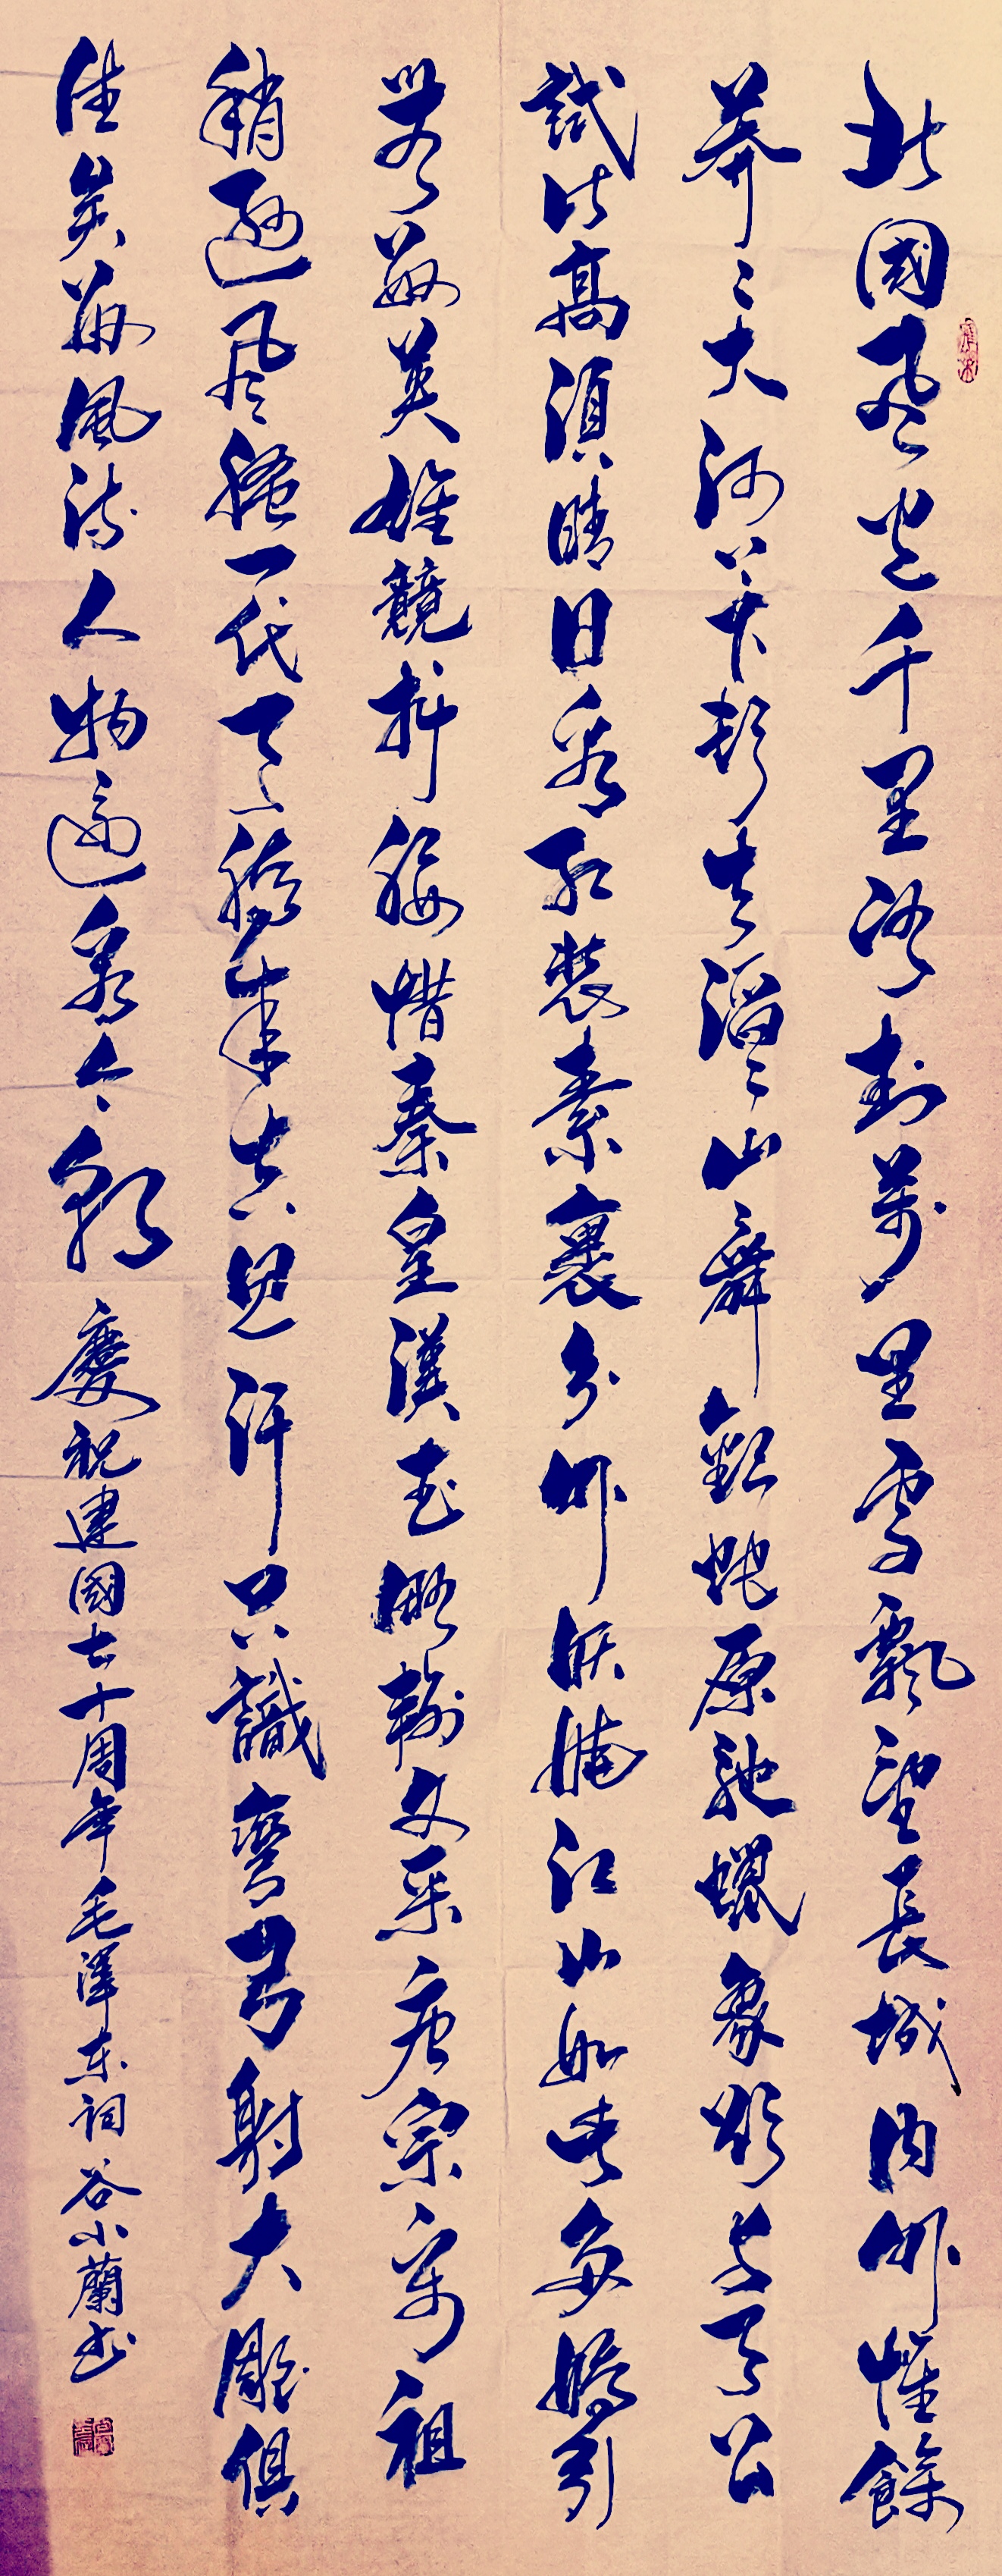 北國風光千里冰封萬里雪飄望長城内外惟餘
莽〻大河上下頓失滔〻山舞銀蛇原馳蠟象欲与天公
試比高須晴日看紅裝素裹分外妖嬈江山如此多嬌引
無數英雄競折腰惜秦皇漢武略輸文采唐宗宋祖
稍遜風騷一代天驕成吉思汗只識彎弓射大雕俱
往矣數風流人物還看今朝 慶祝建國七十周年毛澤东詞谷小蘭书